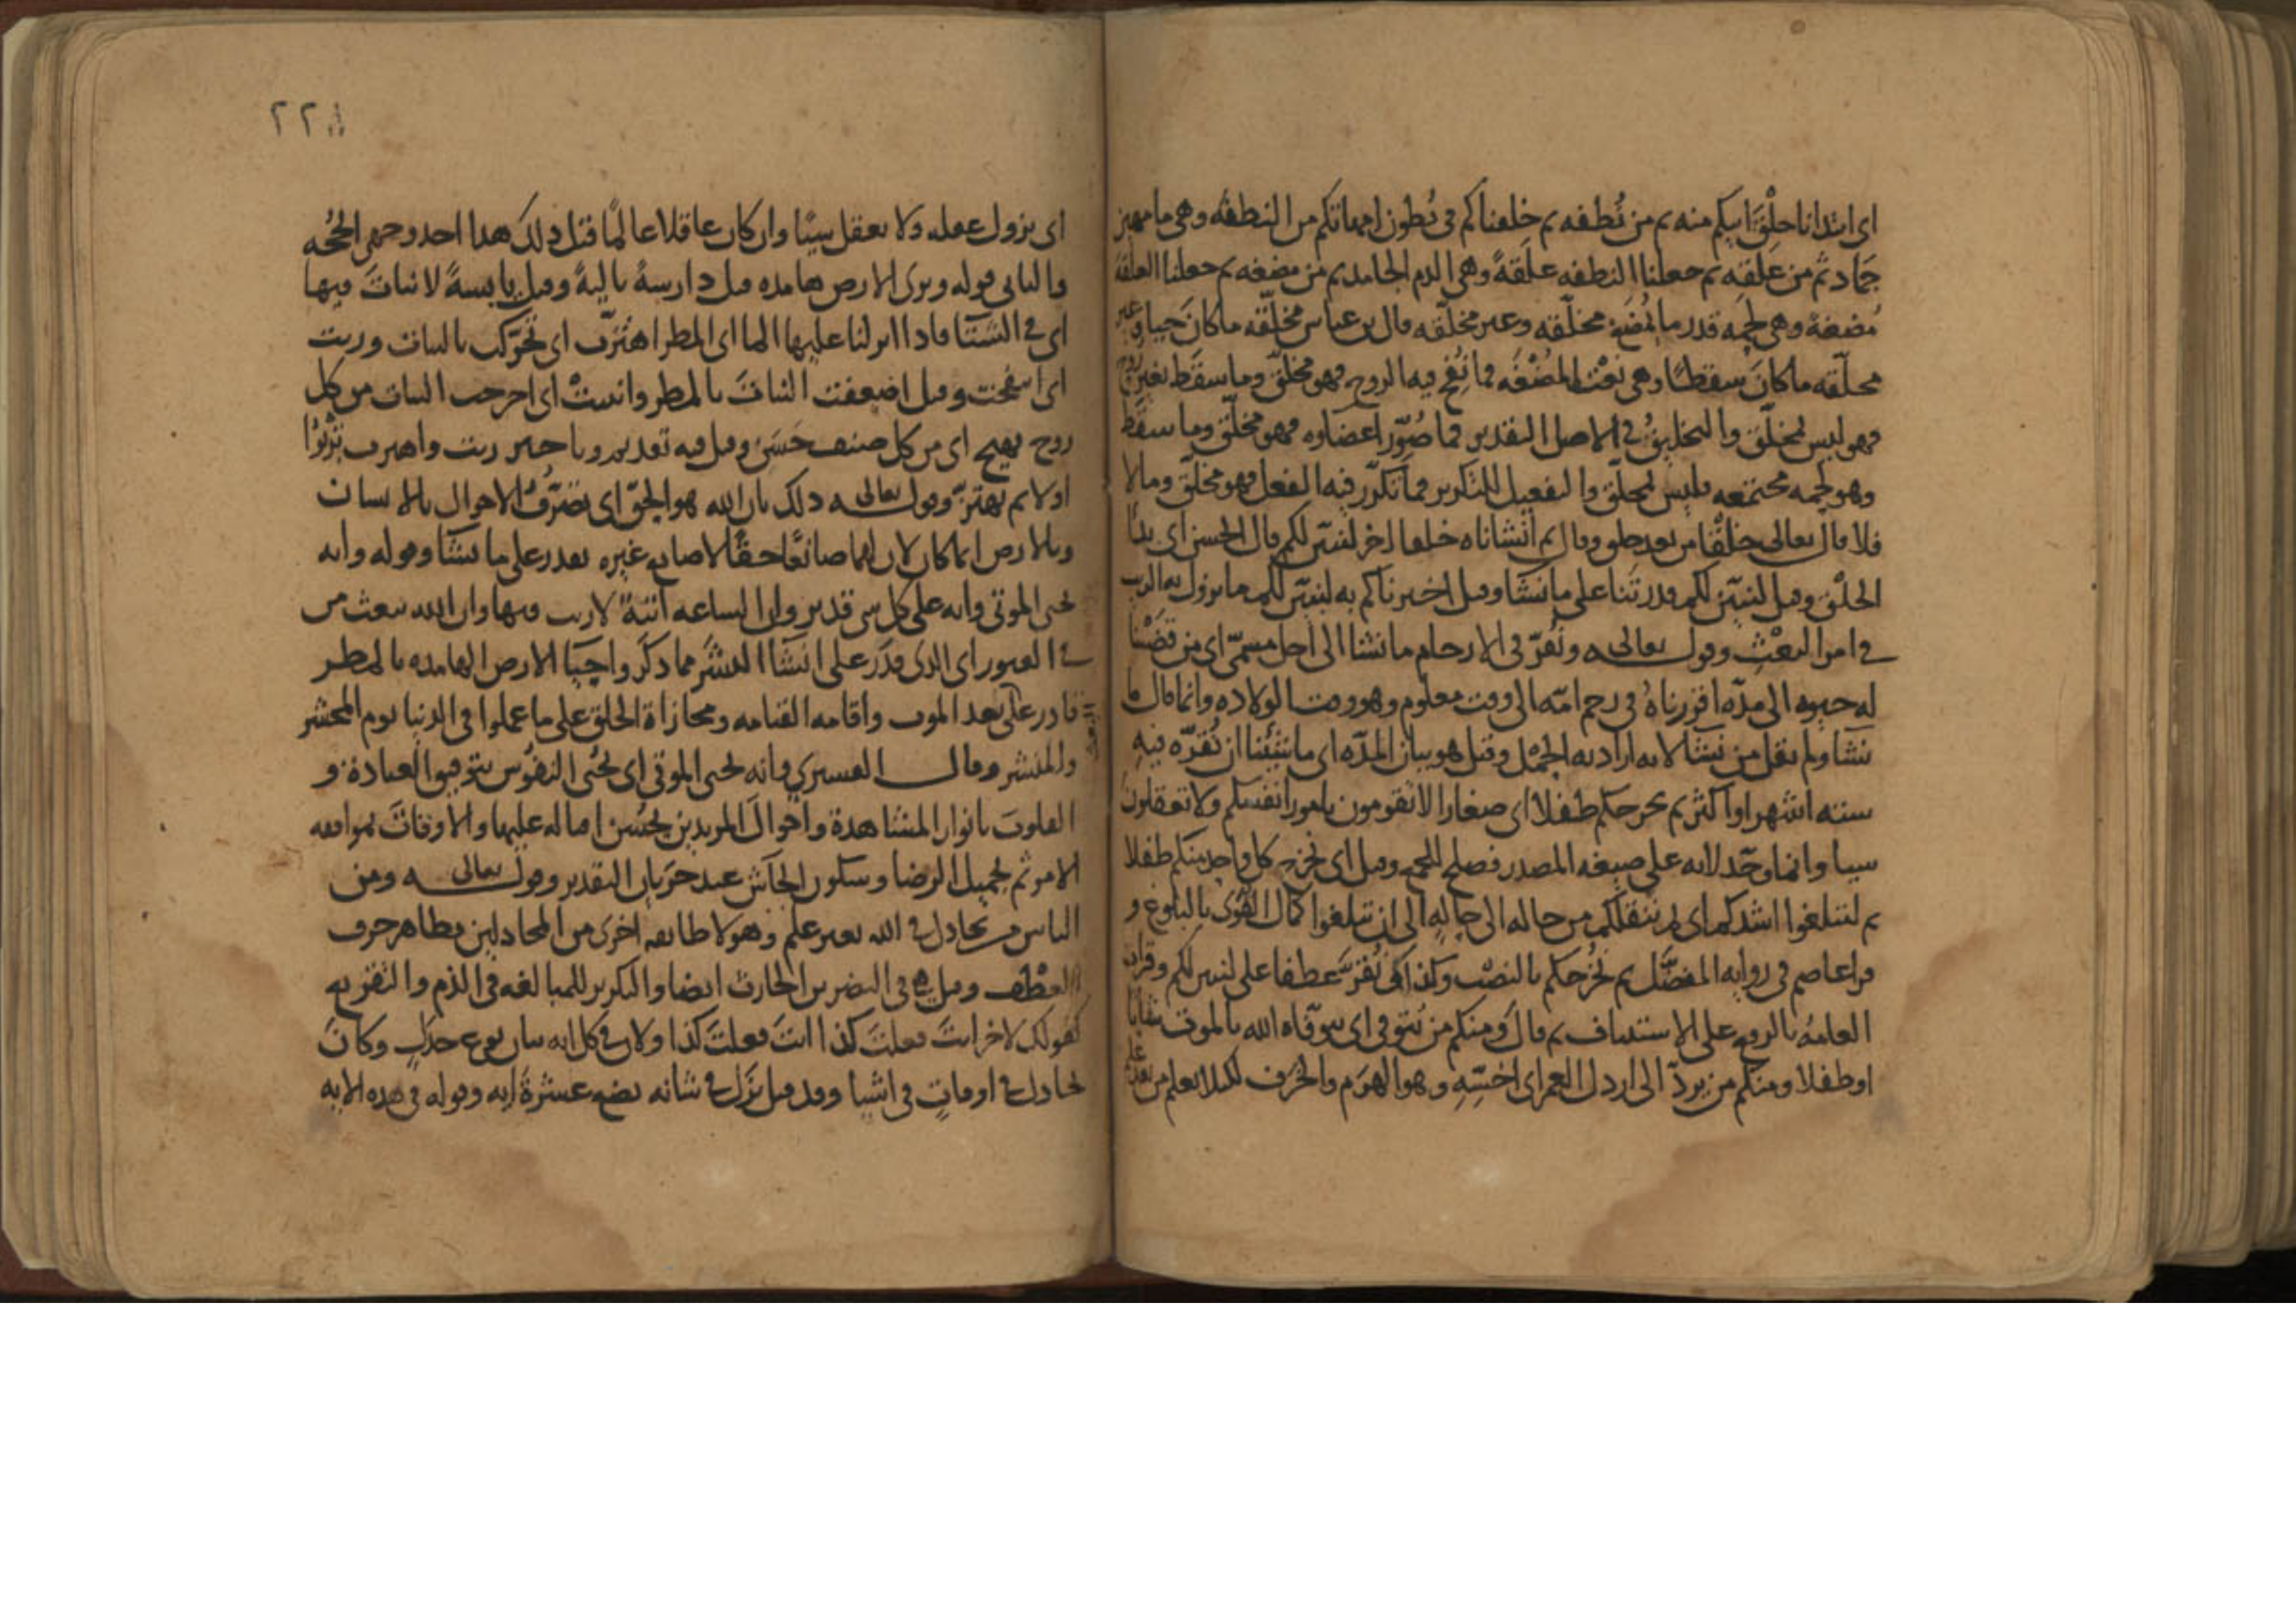 اى ابتدانا خلق ابيكم منه ثم من نُطفه ثم خلقناكم فى بُطون امهاتكم من النطفه وهى ما مهين
جَماد ثم من عَلقه ثم جعلنا النطفه عَلَقةً وهى الدم الجامد ثم من مضغه ثم جعلنا العلقة
مُضغة وهى لحمه قدر ما يُمضَغ مخلّقه وغير مخلّقه قال بن عباس مخلّقه ما كان حيا وغير
مخلّقه ما كانَ سقطًا وهى نعْت المُضْغَه فما نُفِخ فيه الروح فهو مخلّق وما سقَط بغير روح
فهو ليس بمخلّق والتخليقُ فى الاصل التقدير فما صُوّر اعضاوه فهو مخلّق وما سقَط
وهو لحمه مجتمعه فليس بمخلّق والتفعيل للتكرير فما تكرّر فيه الفعل فهو مخلّق وما لا
فلا قال تعالى خلْقًا من بعد خلق وقال ثم انشاناه خلقا اخر لنبيّن لكم قال الحسن اى بدْا
الخلْق وقيل لنبيّن لكم قدرتَنا على ما نشَا وقيل اخبرناكم به لنبيّن لكم ما يزول به الريب
فى امر البعْثِ وقوله تعالى ونُقرّ فى الارحام ما نشا الى اجل مسمّى اى من قضَيْنا
له حيوه الى مدّه اقررناهُ فى رحم امّه الى وقت معلوم وهو وقت الولاده وانما قال ما
نشَا ولم يقل من نشَا لانه اراد به الحمْل وقيل هو بيان المدّه اى ما شِئْنا ان نُقرّه فيهِ
سته اشهر او اكثر ثم نخرجكم طفلا اى صغارا لا تقومون بامور انفسكم ولا تعقلون
شيا وانما وحّد لانه على صيغه المصدر فصلح للجمع وقيل اى نخرج كل واحد منكم طفلا
ثم لتبلغوا اشدكم اى ثم ننقلكم من حاله الى حالهٍ الى ان تبلغوا كمال القُوى بالبلوغ و
قرا عاصم فى روايه المفضَّل ثم نُخرُجكم بالنصْب وكذا فى نُقرَّ عطفا على لنبين لكم وقراه
العامه بالرفع على الاستيناف ثم قالَ ومنكم من يُتوفى اى يتوفّاه الله بالموت شابا
او طفلا ومنكم من يردّ الى ارذل العمر اى اخسّهِ وهو الهرَم والخرَف لكيلا يعلم من بعد علم
٢٢
اى يزول عقله ولا يعقل شيًا وان كان عاقلا عالمًا قبل ذلك هذا احد وجهى الحُجّه
والثانى قوله وترى الارض هامده قيل دارسهً باليهً وقيل يابسهً لا نباتَ فيها
اى فى الشتَا فاذا انزلنا عليها الما اى المطر اهتزّت اى تحرّكت بالنبات وربت
اى انتفخت وقيل اضعفت النباتَ بالمطر وانبتتْ اى اخرجت النبات من كل
زوج بهيج اى من كل صنف حَسَن وقيل فيه تقديم وتاخير ربت واهتزت تربُوا
اولا ثم تهتزّ وقوله تعالى ذلك بان الله هو الحقّ اى تصَرُّفُ الاحوال بالانسان
وبالارض انما كان لان لهما صانعًا حقًا لا صانع غيره يقدر على ما يشَا وقوله وانه
يحى الموتى وانه على كل شى قدير وان الساعه اتيةٌ لا ريب فيها وان الله يبعث من
فى القبور اى الذى قدَر على انشَا البشر مما ذكر واحيَا الارض الهامده بالمطر
قادر على بعد الموت واقامه القيامه ومجازاة الخلق على ما عملوا فى الدنيا يوم المحشر
والمنشر وقال القسيرى وانه يحى الموتى اى يُحى النفوس بتوفيق العبادة و
القلوبَ بانوار المشاهدة واحوالَ المريدين بحُسن اقباله عليها والاوقاتَ بموافقه
الامر ثم بجميل الرضا وسكون الجاش عند جرَيان التقدير وقوله تعالى ومن
الناس من يجادل فى الله بغير علم وهولا طايفه اخرى من المجادلين بظاهر حرف
العطف وقيل هى فى النضر بن الحارث ايضا والتكرير للمبالغه فى الذم والتقريع
كقولك لاخر انتَ فعلتَ كذا انتَ فعلتَ كذا ولان فى كل ايه بيان نوع جدَلٍ وكانَ
يجادل فى اوقاتٍ فى اشيا وقد قيل نزَل فى شانه بضع عشرةَ ايه وقوله فى هذه الايه